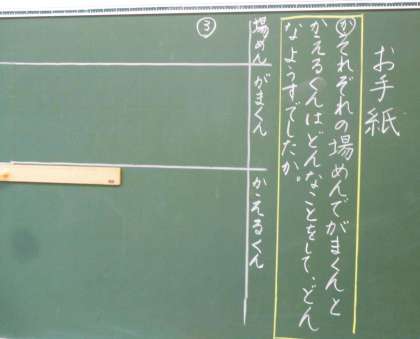 お手紙
かそれぞれの場めんでがまくんと
かえるくんはどんなことをして、どん
なようすでしたか。
場めん がまくん かえるくん
③